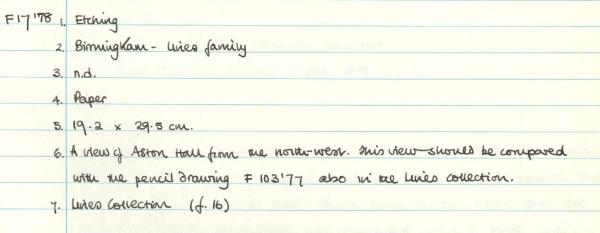 F17'78 1. Etching
2. Birmingham - Lines family
3. n.d.
4. Paper
5. 19.2 x 29.5 cm.
6. A view of Aston Hall from the north-west. This view should be compared
with the pencil drawing F103'77 also in the Lines collection.
7. Lines Collection (f.16)